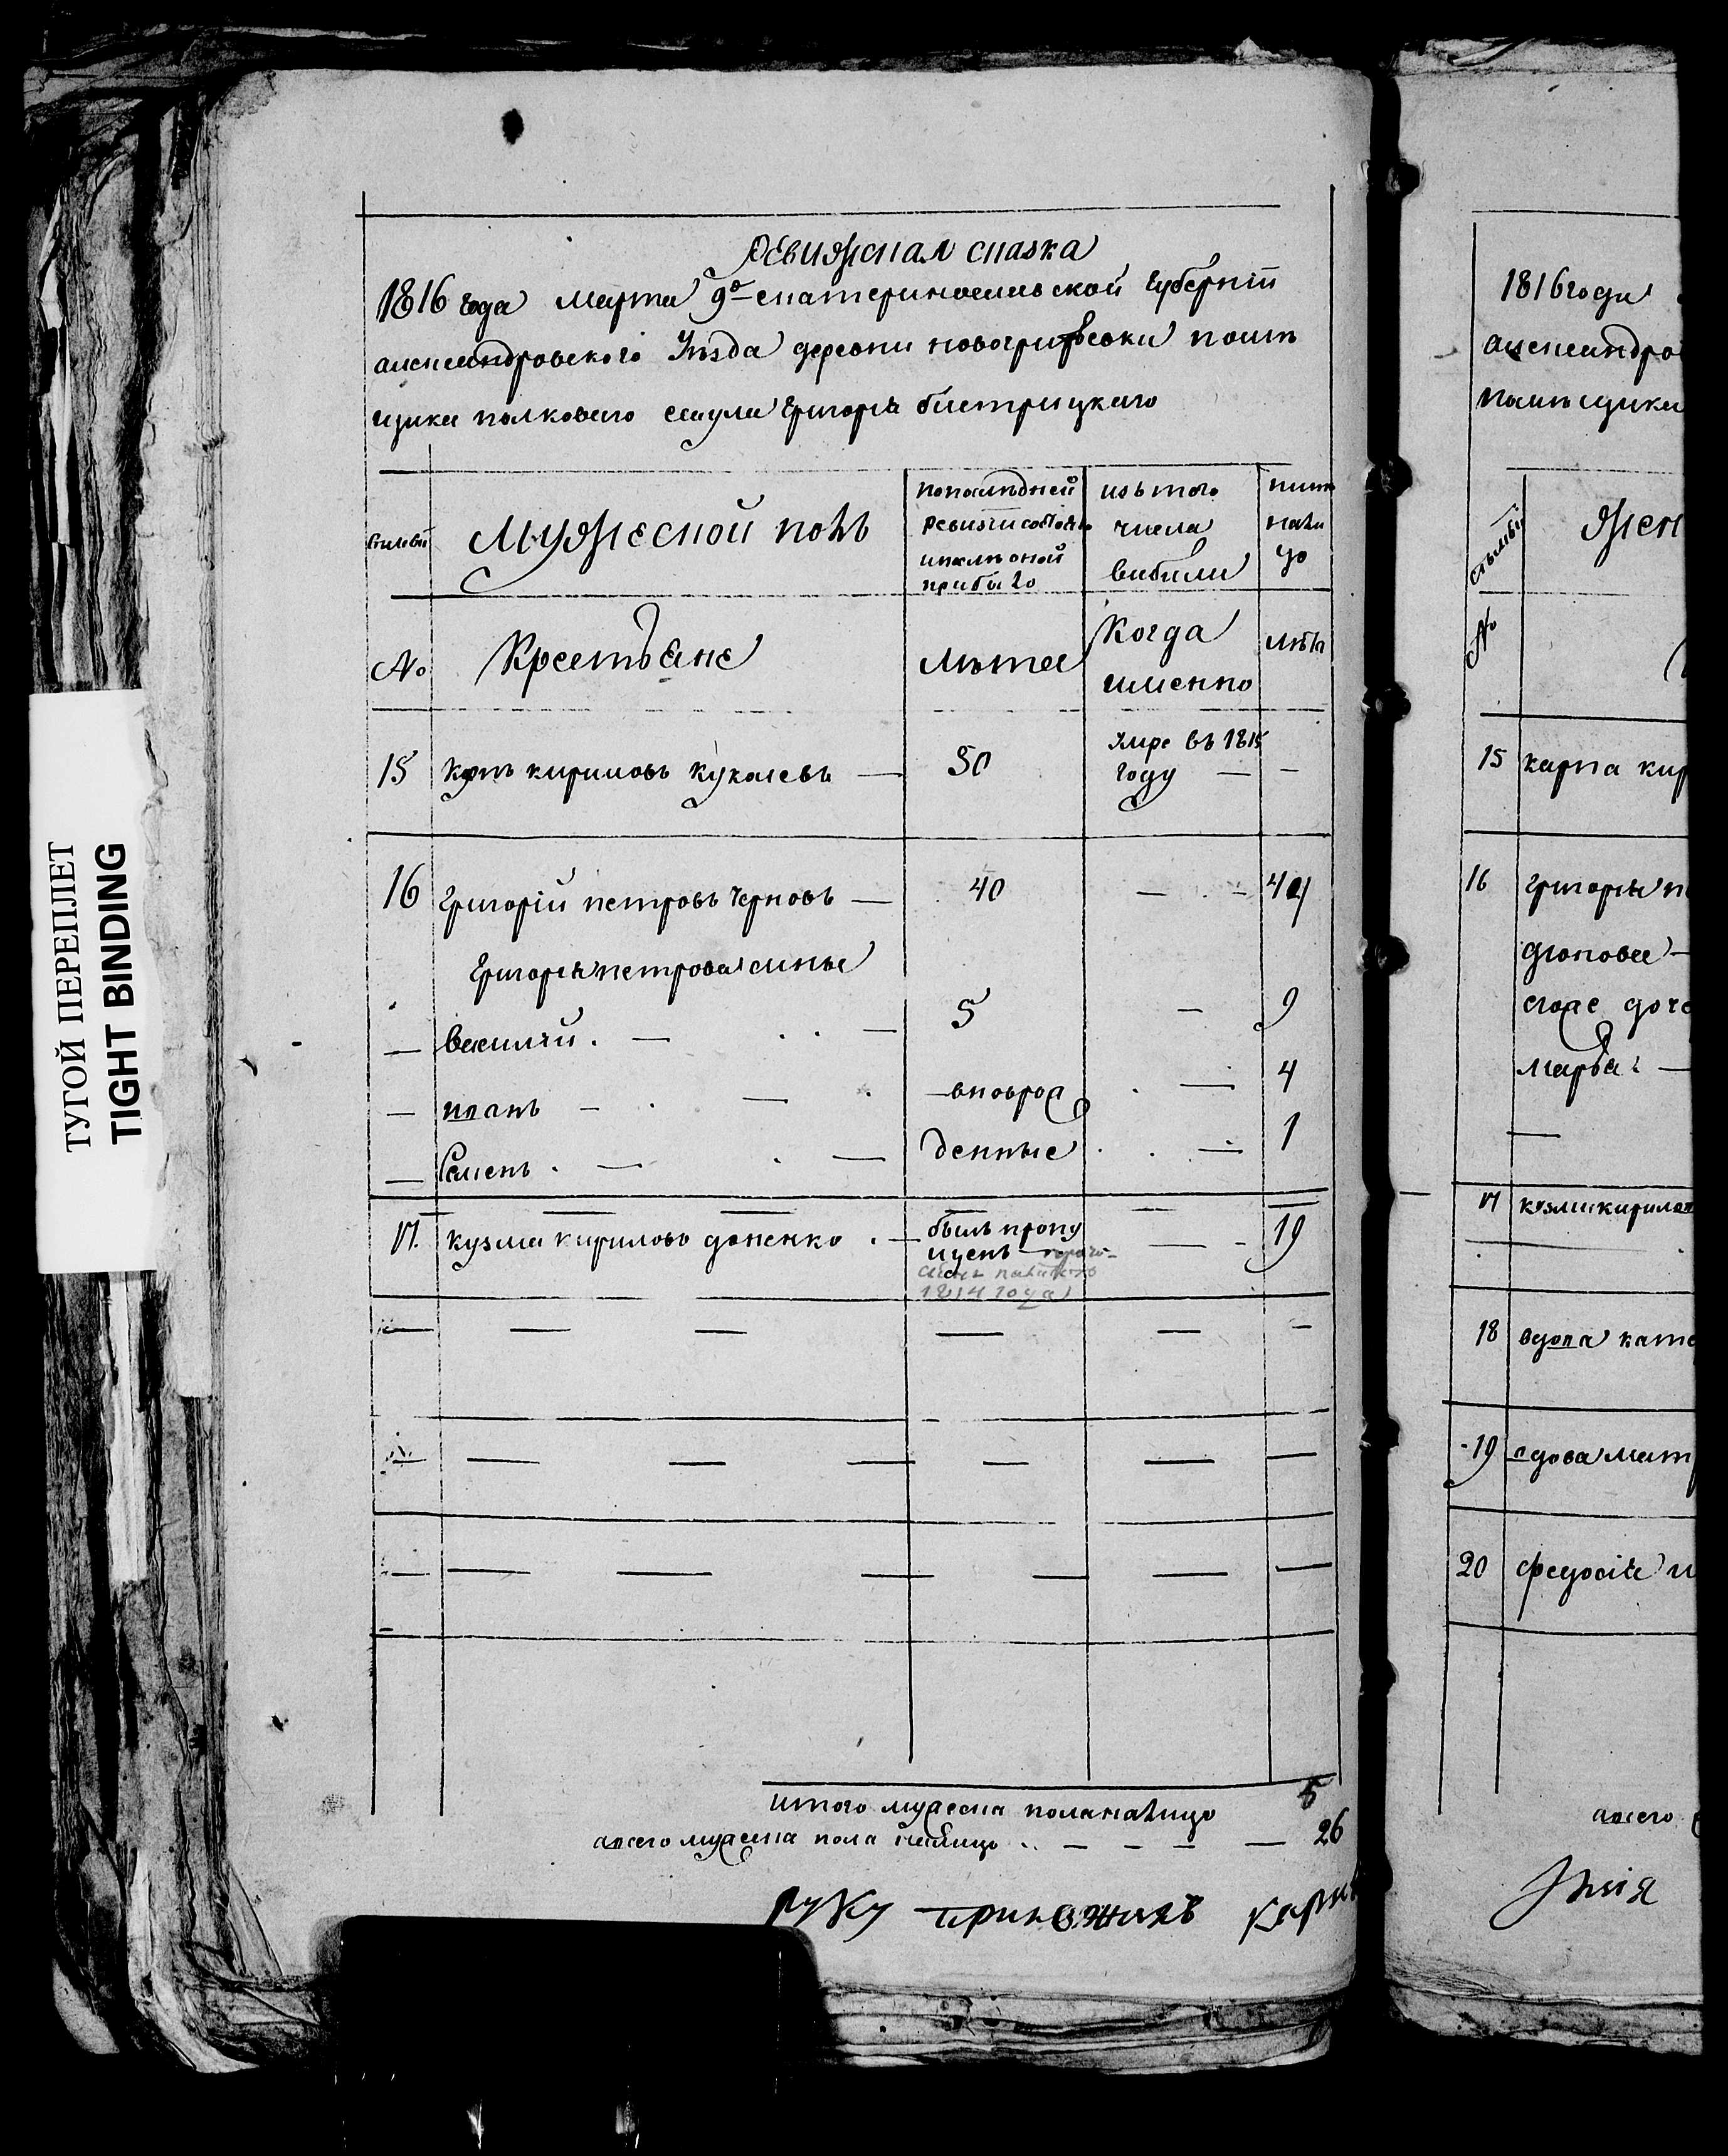 ТУГОЙ ПЕРЕПЛЕТ
TIGHT BINDING
Ревижская сказка
1816 года Марта 9го екатеринославской Губернiи
александровского Уѣзда деревни новогригоровки помѣ
щика полкового есаула Григорiя бистрицкаго
Мужеской полъ
попослѣдней
ревизiи состояло
ипослѣ оной
прибыло
изъ того
числа
вибили
ныне
нали
цо
No
Крестьяне
лѣта
Когда
именно
лѣта
15
кирилловъ
50
Умре въ 1815
году
16
Григорiй петровъ черновъ
40
44
Григорiя петрова сины
василiй
5
9
иванъ
вноврож
4
Семенъ
денные
1
17
кузма кириловъ доненко
былъ пропу
щенъ
1814 года
19
итого мужеска пола налицо
5
всего мужеска пола налицо
26
руку приложилъ
1816 года
александро
помѣщика
жен
No
15
карпа кир
16
Григорiя п
дочь
марфа
17
кузми кирилов
18
вдова кате
19
вдова мат
20
федосiя
всего